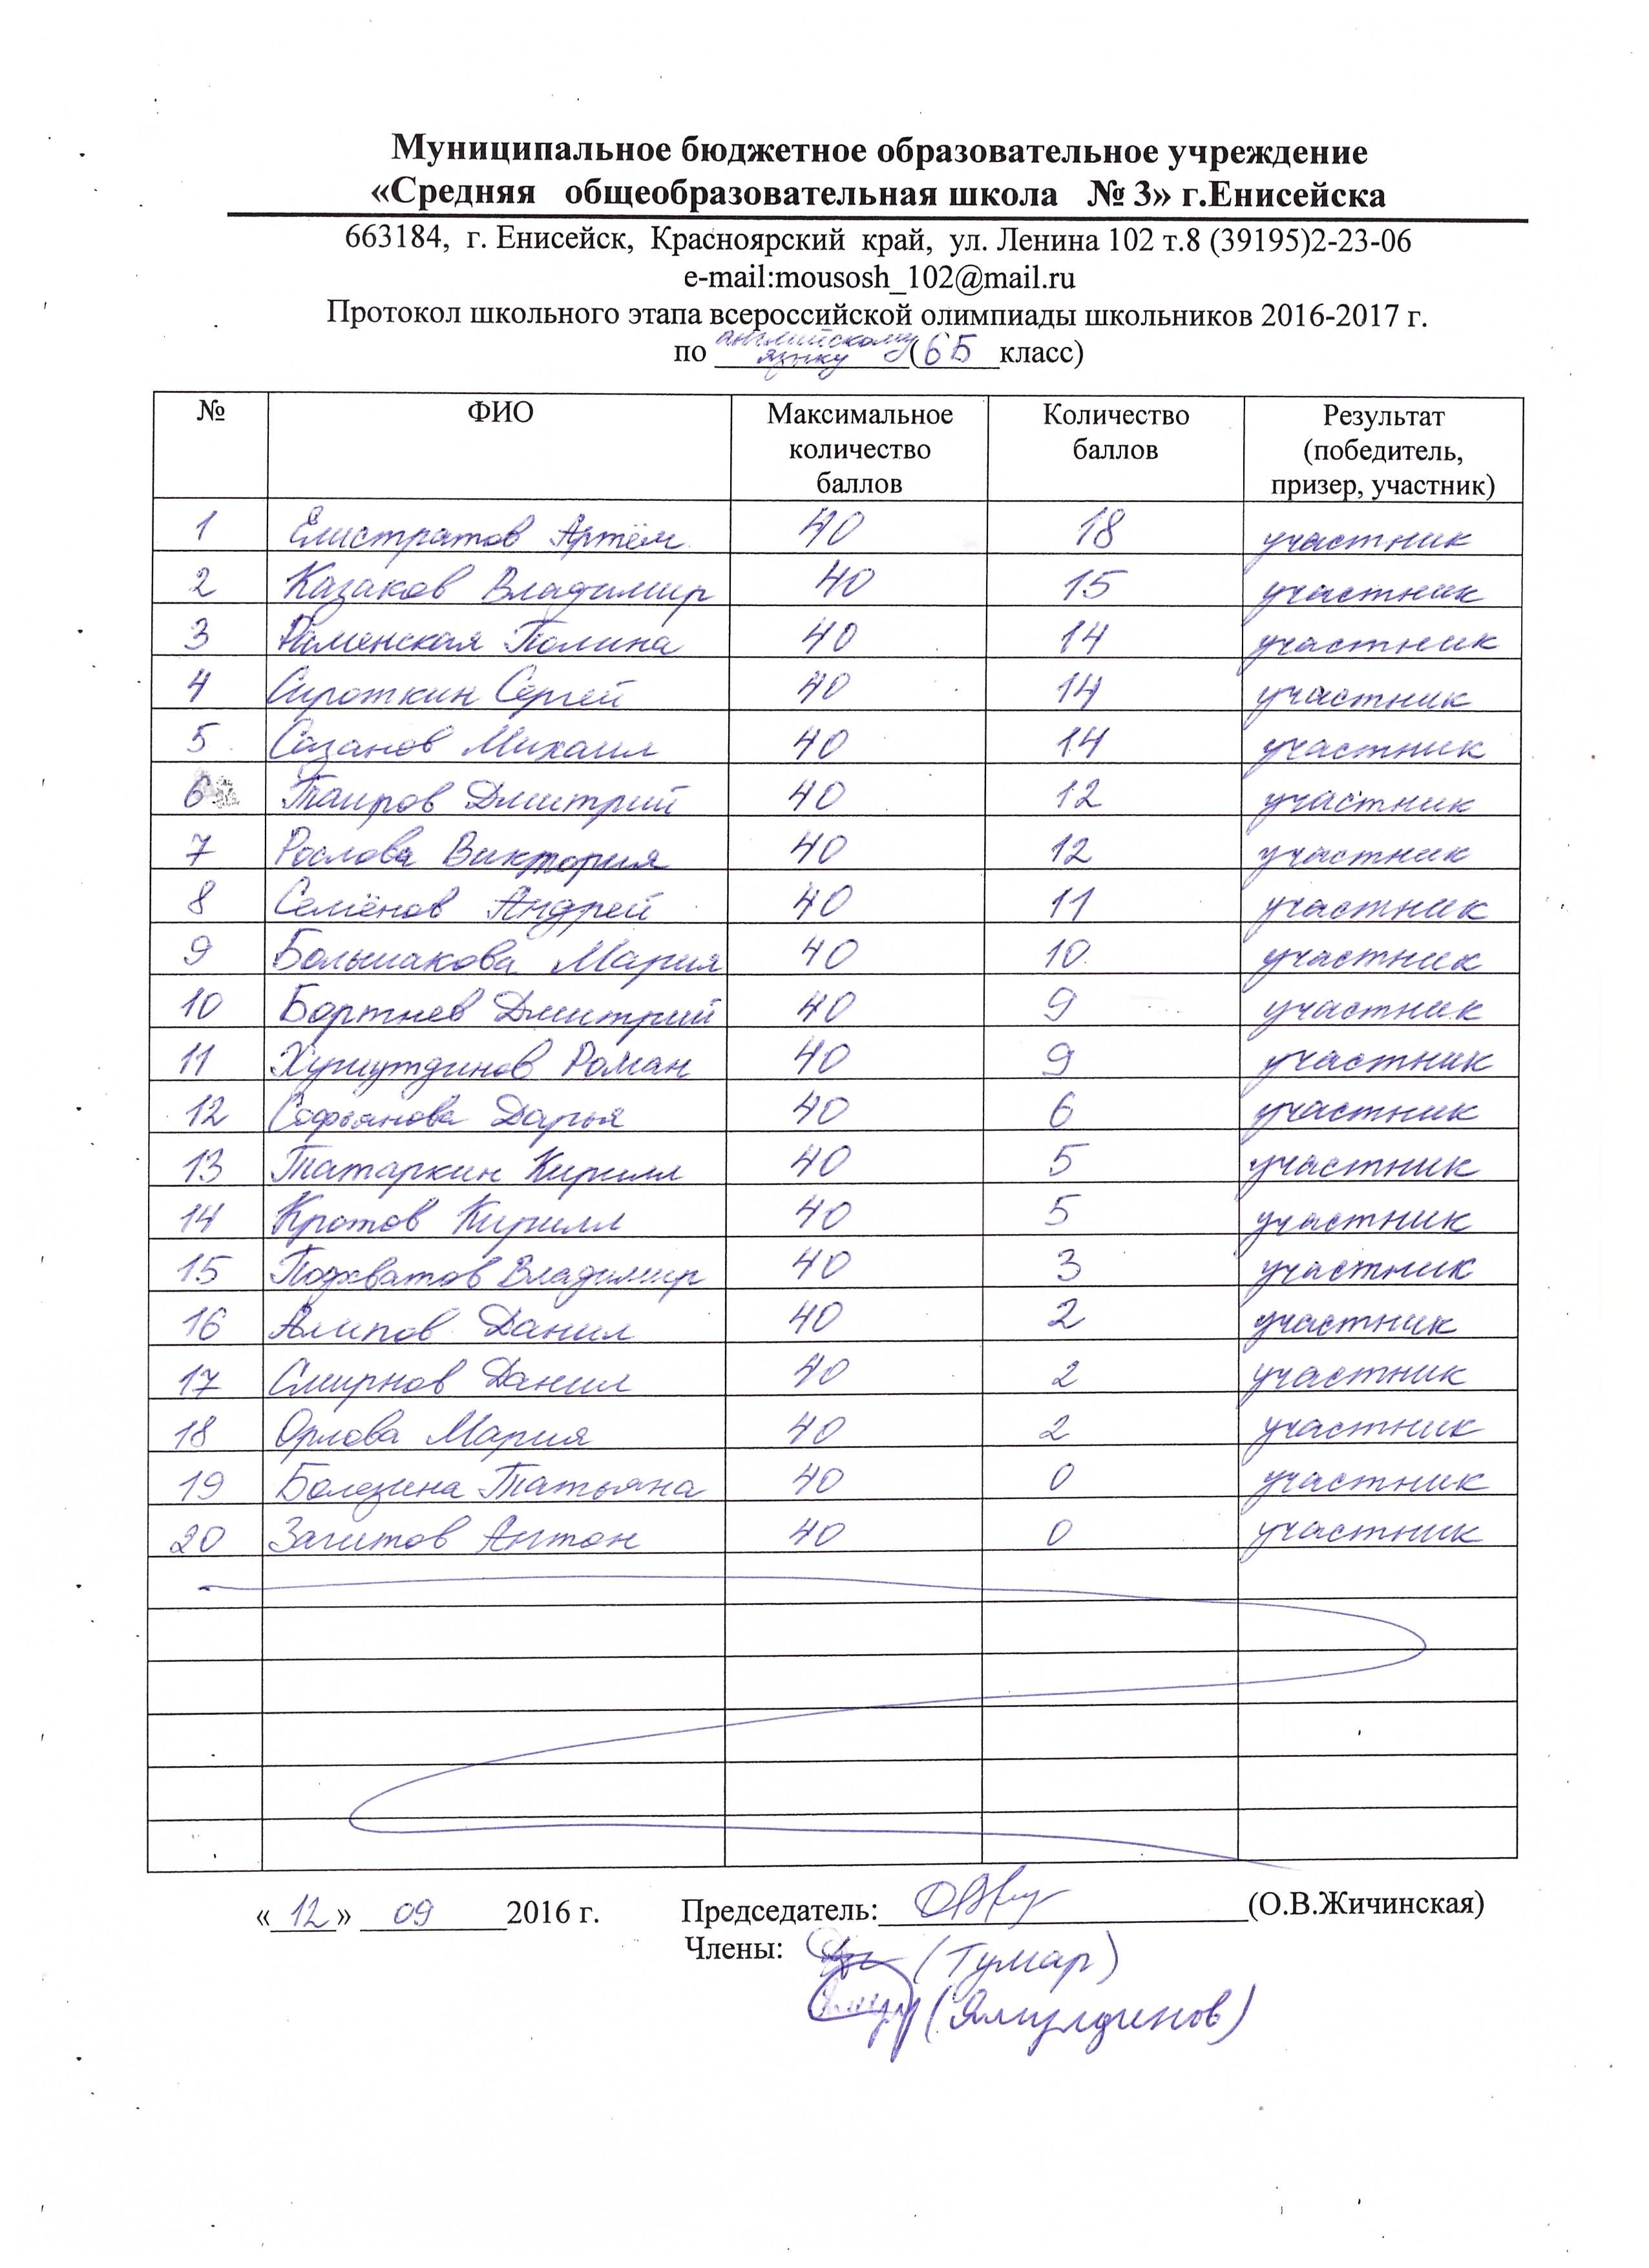 Муниципальное бюджетное образовательное учреждение
«Средняя общеобразовательная школа № 3» г.Енисейска
663184, г. Енисейск, Красноярский край, ул. Ленина 102 т.8 (39195)2-23-06
e-mail:mousosh_102@mail.ru
Протокол школьного этапа всероссийской олимпиады школьников 2016-2017 г.
по английскому языку (6Б класс)
№ ФИО Максимальное количество баллов Количество баллов Результат (победитель, призер, участник)
1 Елистратов Артём 40 18 участник
2 Казаков Владимир 40 15 участник
3 Раменская Полина 40 14 участник
4 Сироткин Сергей 40 14 участник
5 Сазанов Михаил 40 14 участник
6 Таиров Дмитрий 40 12 участник
7 Рослова Виктория 40 12 участник
8 Семёнов Андрей 40 11 участник
9 Большакова Мария 40 10 участник
10 Бортнев Дмитрий 40 9 участник
11 Роман 40 9 участник
12 Софьянова Дарья 40 6 участник
13 Татаркин Кирилл 40 5 участник
14 Кротов Кирилл 40 5 участник
15 Подхватов Владимир 40 3 участник
16 Алипов Данил 40 2 участник
17 Смирнов Данил 40 2 участник
18 Орлова Мария 40 2 участник
19 Болезина Татьяна 40 0 участник
20 Загитов Антон 40 0 участник
«12» 09 2016 г. Председатель: (О.В.Жичинская)
Члены: (Тумар)